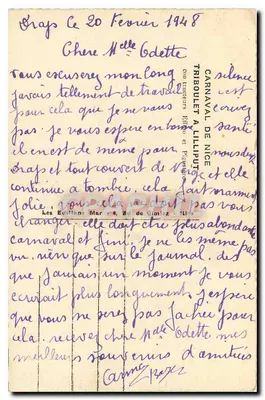 Draps le 20 Fevrier 1948
Chere Melle Odette
vous excuserez mon long silence
javais tellement de travail c'est
pour cela que je ne vous
pas. je vous espère en bonne santé
il en est de même pour
Draps et tout couvert de et elle
continue a tombé. cela fait vraiment
jolie. pas
changer elle doit être plus abondante
carnaval et fini. je ne les même pas
vu. rien que sur le journal. des
que jaurais un moment je vous
écrirait plus longuement. j'espère
que vous ne serez pas fachée pour
cela. recevez chere Melle Odette mes
meilleurs souvenirs d'amitiés
CARNAVAL DE NICE
TRIBOULET A LILLIPUT